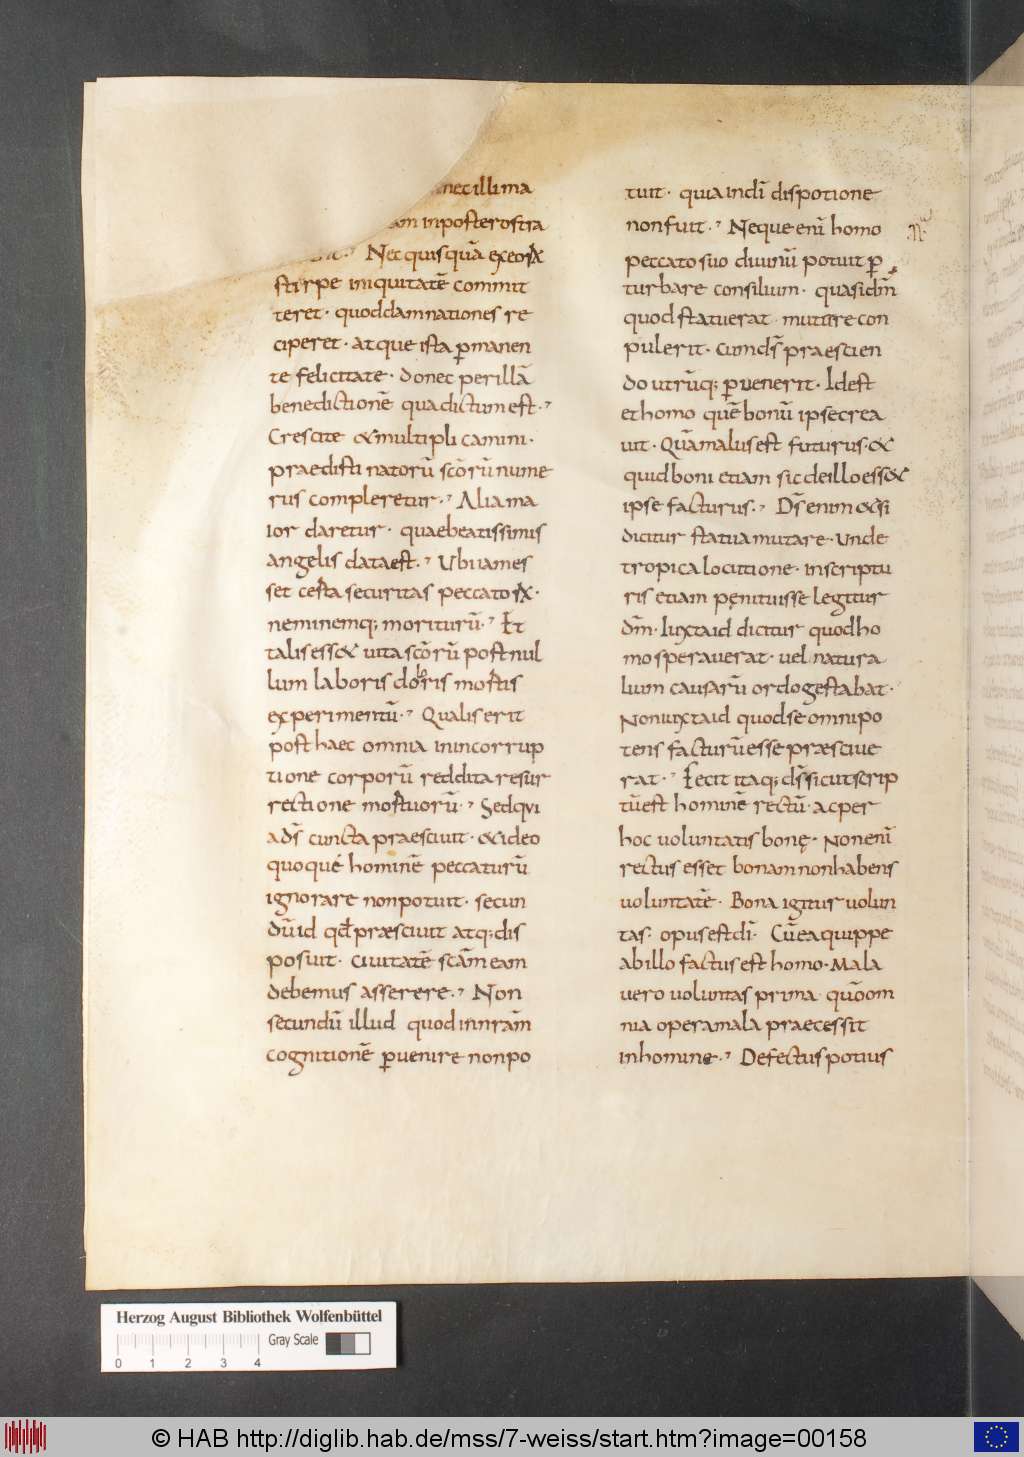 nec illi ma
am inposteros tra
Nec quisquā exeorū
stirpe iniquitatē commit
teret · quoddamnationes re
ciperet · atque ista ꝑmanen
te felicitate · donec perillā
benedictionē qua dictum est ·
Crescite &multiplicamini ·
praedistinatorū sc̄orū nume
rus compleretur · Alia ma
ior daretur · quaebeatissimis
angelis data est · Ubi iam es
set certa securitas peccatorū ·
neminemq; moriturū · Et
talis ess& uita sc̄orū post nul
lum laboris doloris mortis
experimentū · Qualis erit
post haec omnia inincorrup
tione corporū reddita resur
rectione mortuorū · Sed qui
a ds̄ cuncta praesciuit · &ideo
quoque hominē peccaturū
ignorare non potuit · secun
dū id qd̄ præsciuit atq; dis
posuit · ciuitatē sc̄am eam
debemus asserere · Non
secundū illud quod innr̄am
cognitionē ꝑuenire nonpo
tuit · quia indī dispotione
non fuit · Neque enī homo
peccato suo diuinū potuit ꝑ
turbare consilium · quasi dm̄
quod statuerat mutare con
pulerit · cum ds̄ praescien
do utrūq; ꝑuenerit · Idest
et homo quē bonū ipse crea
uit · Quā malus est futurus · &
quid boni etiam sic de illo ess&
ipse facturus · Ds̄ enim &si
dicitur statuamutare · unde
tropica locutione · inscriptu
ris etiam pęnituisse legitur
dm̄ · Iuxtaid dicitur quod ho
mo sperauerat · uel natura
lium causarū ordo gestabat ·
Non iuxtaid quod se omnipo
tens facturū esse præsciue
rat · Fecit itaq; ds̄ sicut scrip
tū est hominē rectū · ac per
hoc uoluntatis bonę · Non enī
rectus esset bonam non habens
uoluntatē · Bona igitur uolun
tas · opus est dī · Cū ea quippe
ab illo factus est homo · Mala
uero uoluntas prima quō om
nia opera mala praecessit
inhomine · Defectus potius
Herzog August Bibliothek Wolfenbüttel
Gray Scale
0 1 2 3 4
© HAB http://diglib.hab.de/mss/7-weiss/start.htm?image=00158